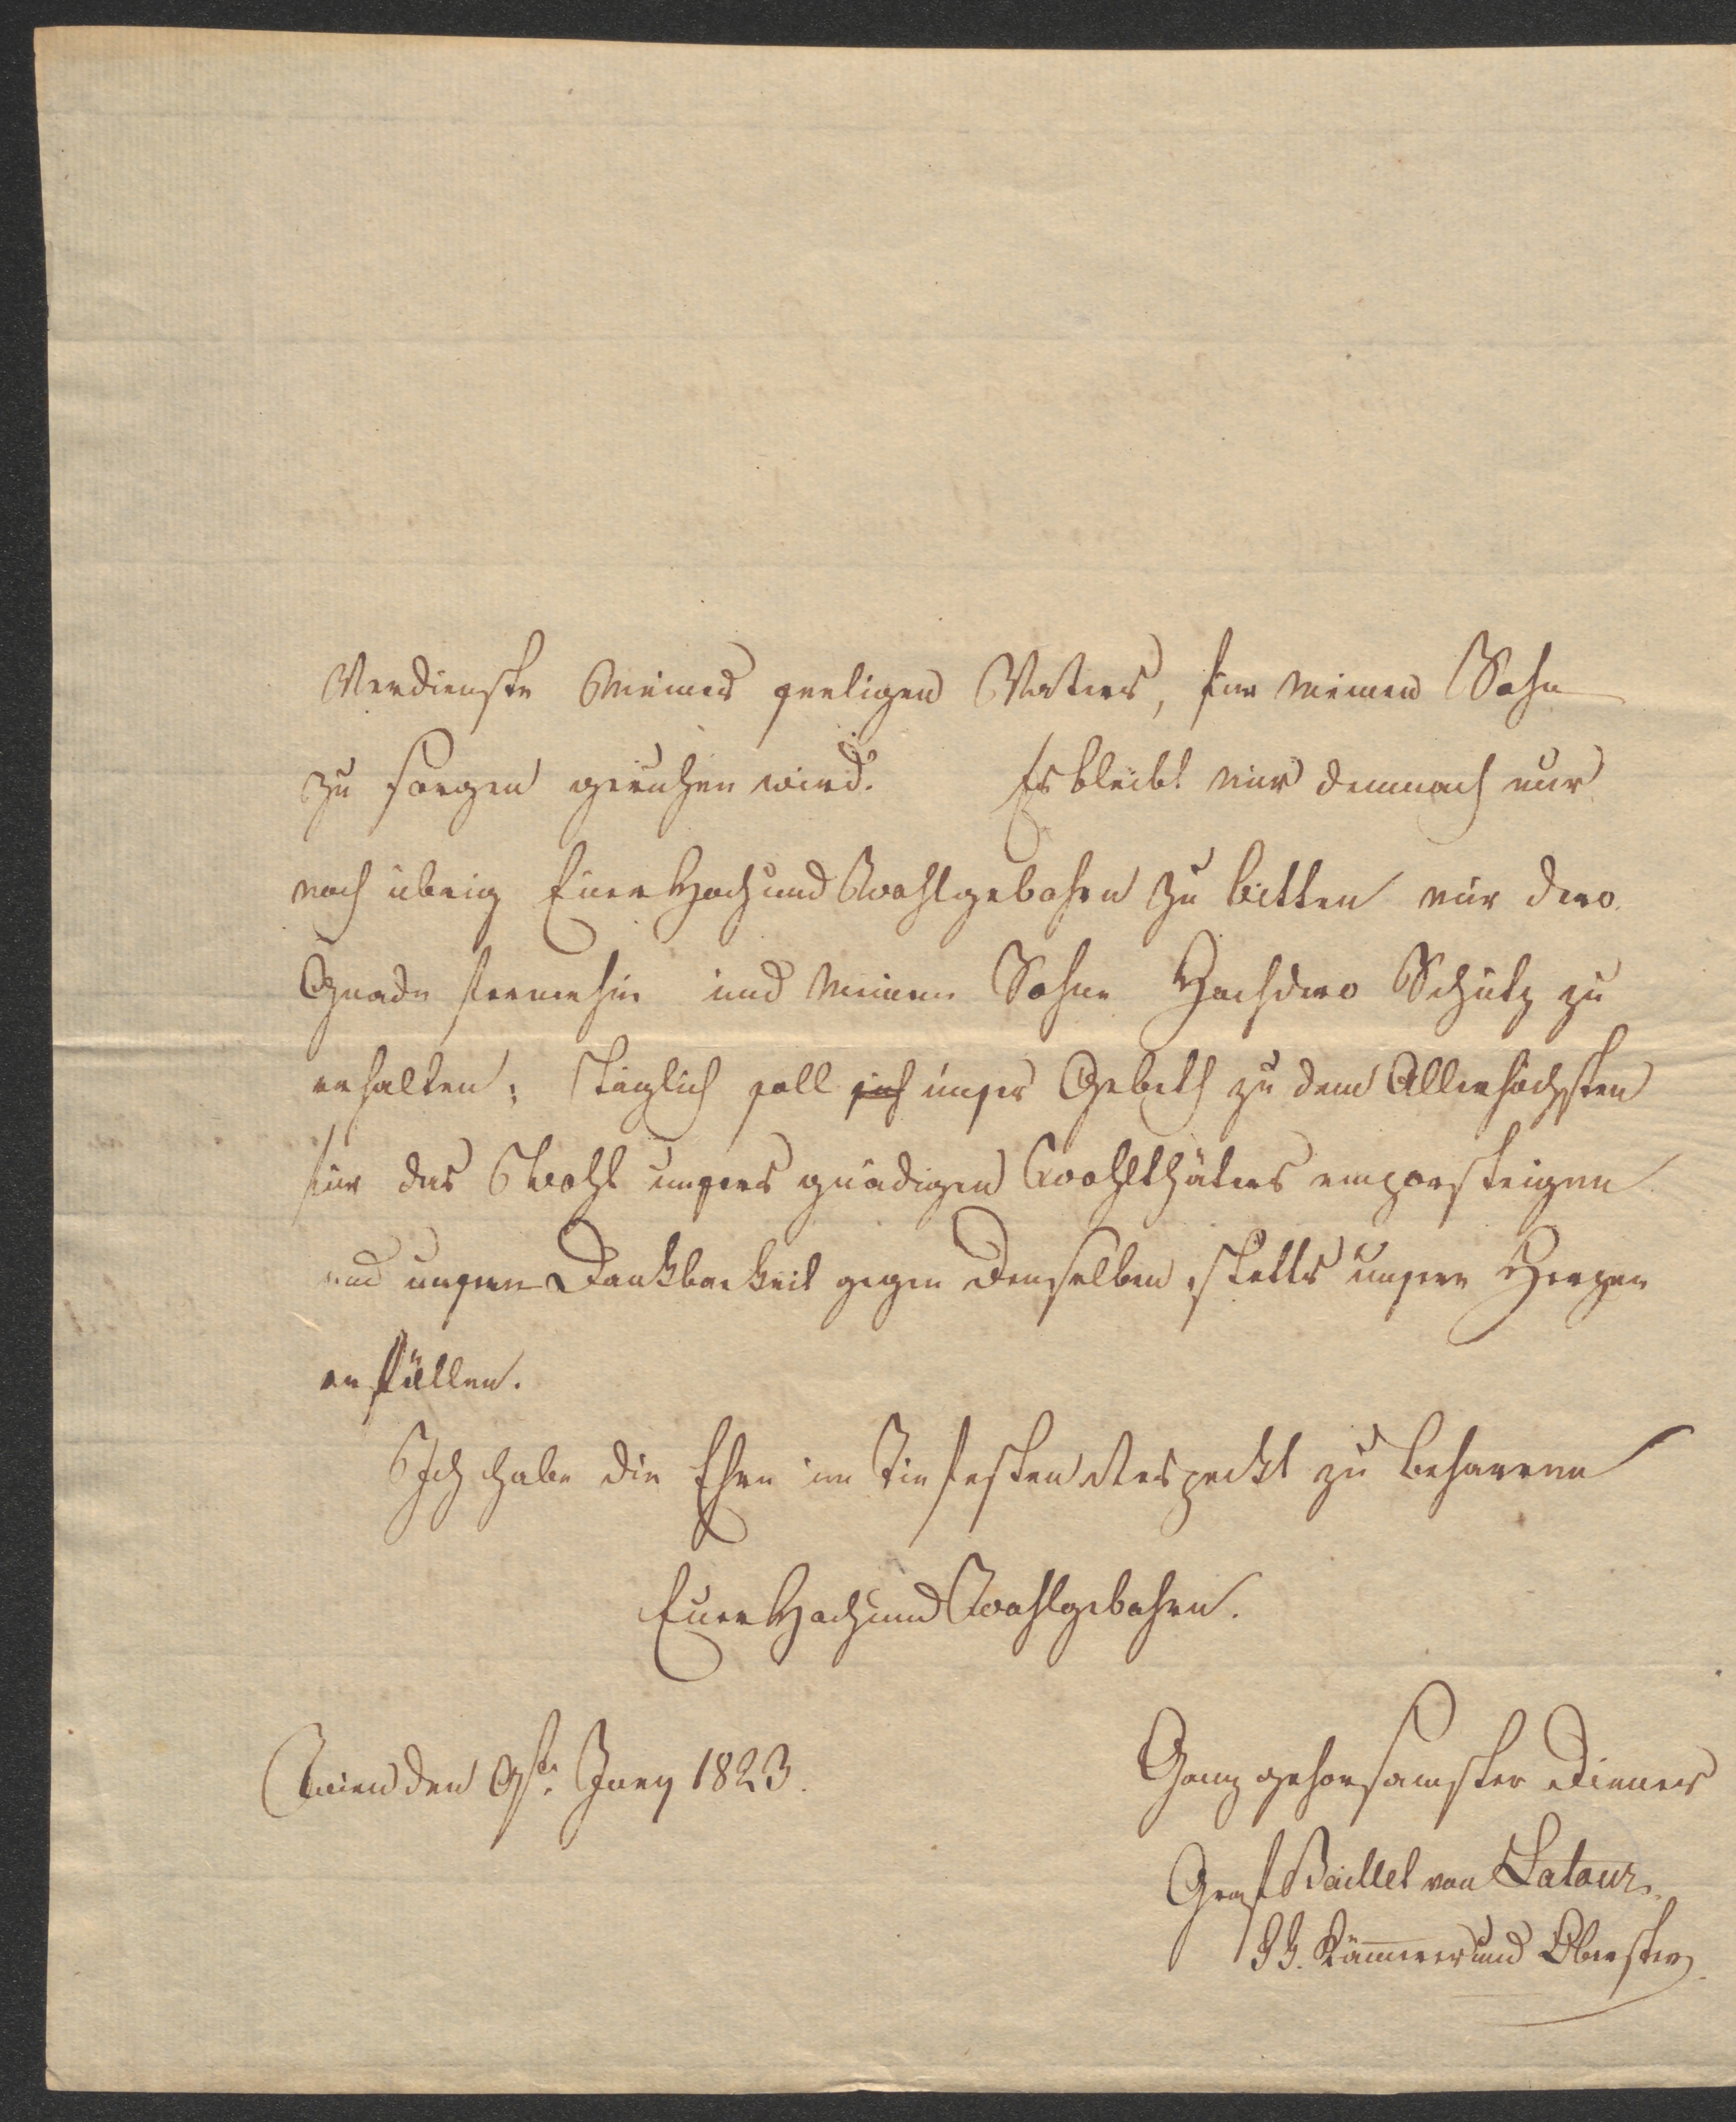 Verdienste Meines seeligen Vaters, für meinen Sohn
zu sorgen geruhen wird. Es bleibt mir demnach nur
noch übrig Euer Hoch und Wohlgebohrn zu bitten mir dero
Gnade fernerhin und meinem Sohne Hochdero Schutz zu
erhalten; täglich soll sich unser Gebeth zu dem Allerhöchsten
für das Wohl unseres gnädigen Wohlthäters emporsteigen
und unsere Dankbarkeit gegen denselben stetts unsere Herzen
erfüllen.
Ich habe die Ehre im Tiefesten Respeckt zu beharren
Euer Hoch und Wohlgebohrn.
Wien den 9te Juny 1823.
Ganz gehorsamster Diener
Graf Baillet von Latour
KK. Kämmerer und Oberster